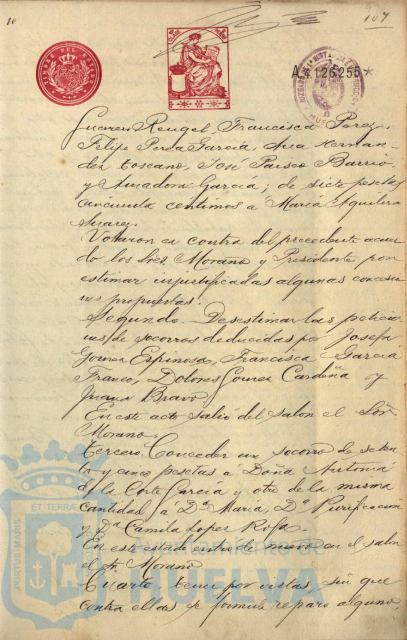 10
107
TIMBRE DEL ESTADO
A.4.126.255*
Gomez Rengel, Francisca Perez,
Felipe Perda Garcia, Ana Hernan-
dez Toscano, José Barrio
y Amadora García; de siete pesetas
cincuenta centimos a María Aquilera
Suarez.
Votaron en contra del precedente acuer-
do los Sres Morano y Presidente por
estimar injustificadas algunas concesio-
nes propuestas.
Segundo. Desestimar las peticio-
nes de socorros deducidas por Josefa
Gomez Espinosa, Francisca Garcia
Franco, Dolores Gomez Cardeña y
Juana Bravo.
En este acto salió del salon el Sor.
Morano.
Tercero. Conceder un socorro de seten-
ta y cinco pesetas á Doña Antonia
de la Corte García y otro de la misma
cantidad á Dª María, Dª Purificación
y Dª Camila Lopez Rosa.
En este estado entro de nuevo en el salon
el Sr. Morano
Cuarto. Tener por vistas, sin que
contra ellas se formule reparo alguno,
PORTUS MARIS
ET TERRAE
Ayuntamiento de
HUELVA